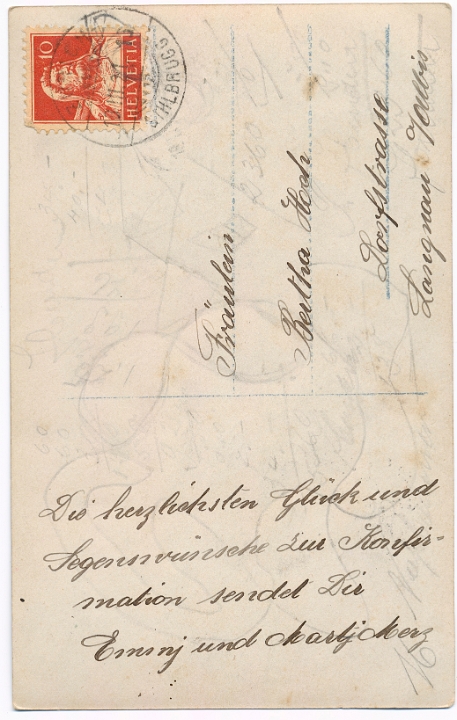 10
HELVETIA
SIHLBRUGG
Fräulein
Bertha Hoch
Dorfstrasse
Langnau
Die herzlichsten Glück und
Segenswünsche zur Konfir-
mation sendet Dir
Emmj und Martj Merz